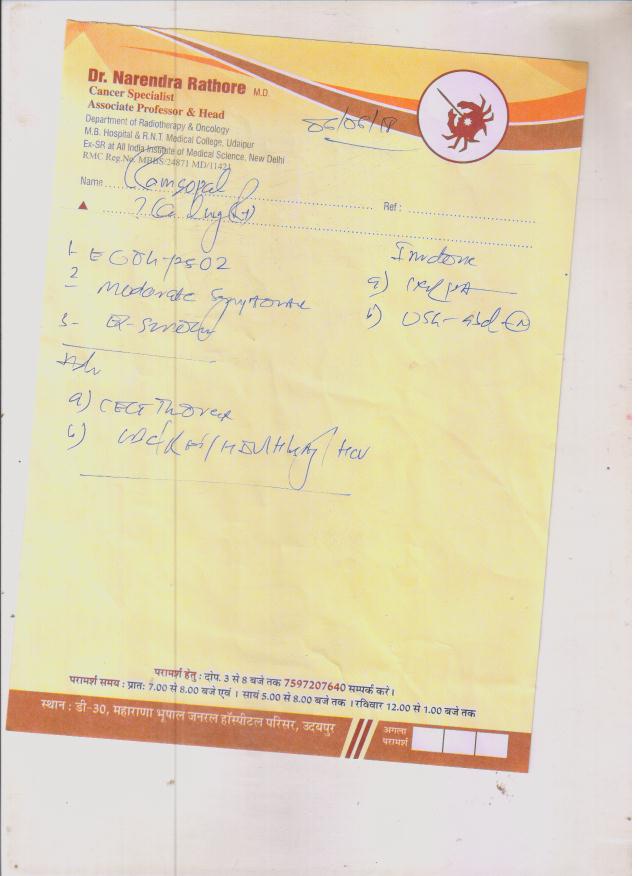 Dr. Narendra Rathore M.D.
Cancer Specialist
Associate Professor & Head
Department of Radiotherapy & Oncology
M.B. Hospital & R.N.T. Medical College, Udaipur
Ex-SR at All India Institute of Medical Science, New Delhi
RMC Reg.No. MBBS/24871 MD/11421
06/06/18
Name Ramgopal
Ref :
? Ca lung
1- ECOG-PS02
2- Moderate Symptomatic
3- Ex-Smoker
a)
b) USG-abd-(N)
Adv
a) CECT Thorax
b) CBC/RFT/HBV/HIV/HCV
परामर्श हेतु : दोप. 3 से 8 बजे तक 7597207640 सम्पर्क करें।
परामर्श समय : प्रातः 7.00 से 8.00 बजे एवं । सायं 5.00 से 8.00 बजे तक । रविवार 12.00 से 1.00 बजे तक
स्थान : डी-30, महाराणा भूपाल जनरल हॉस्पीटल परिसर, उदयपुर
अगला
परामर्श